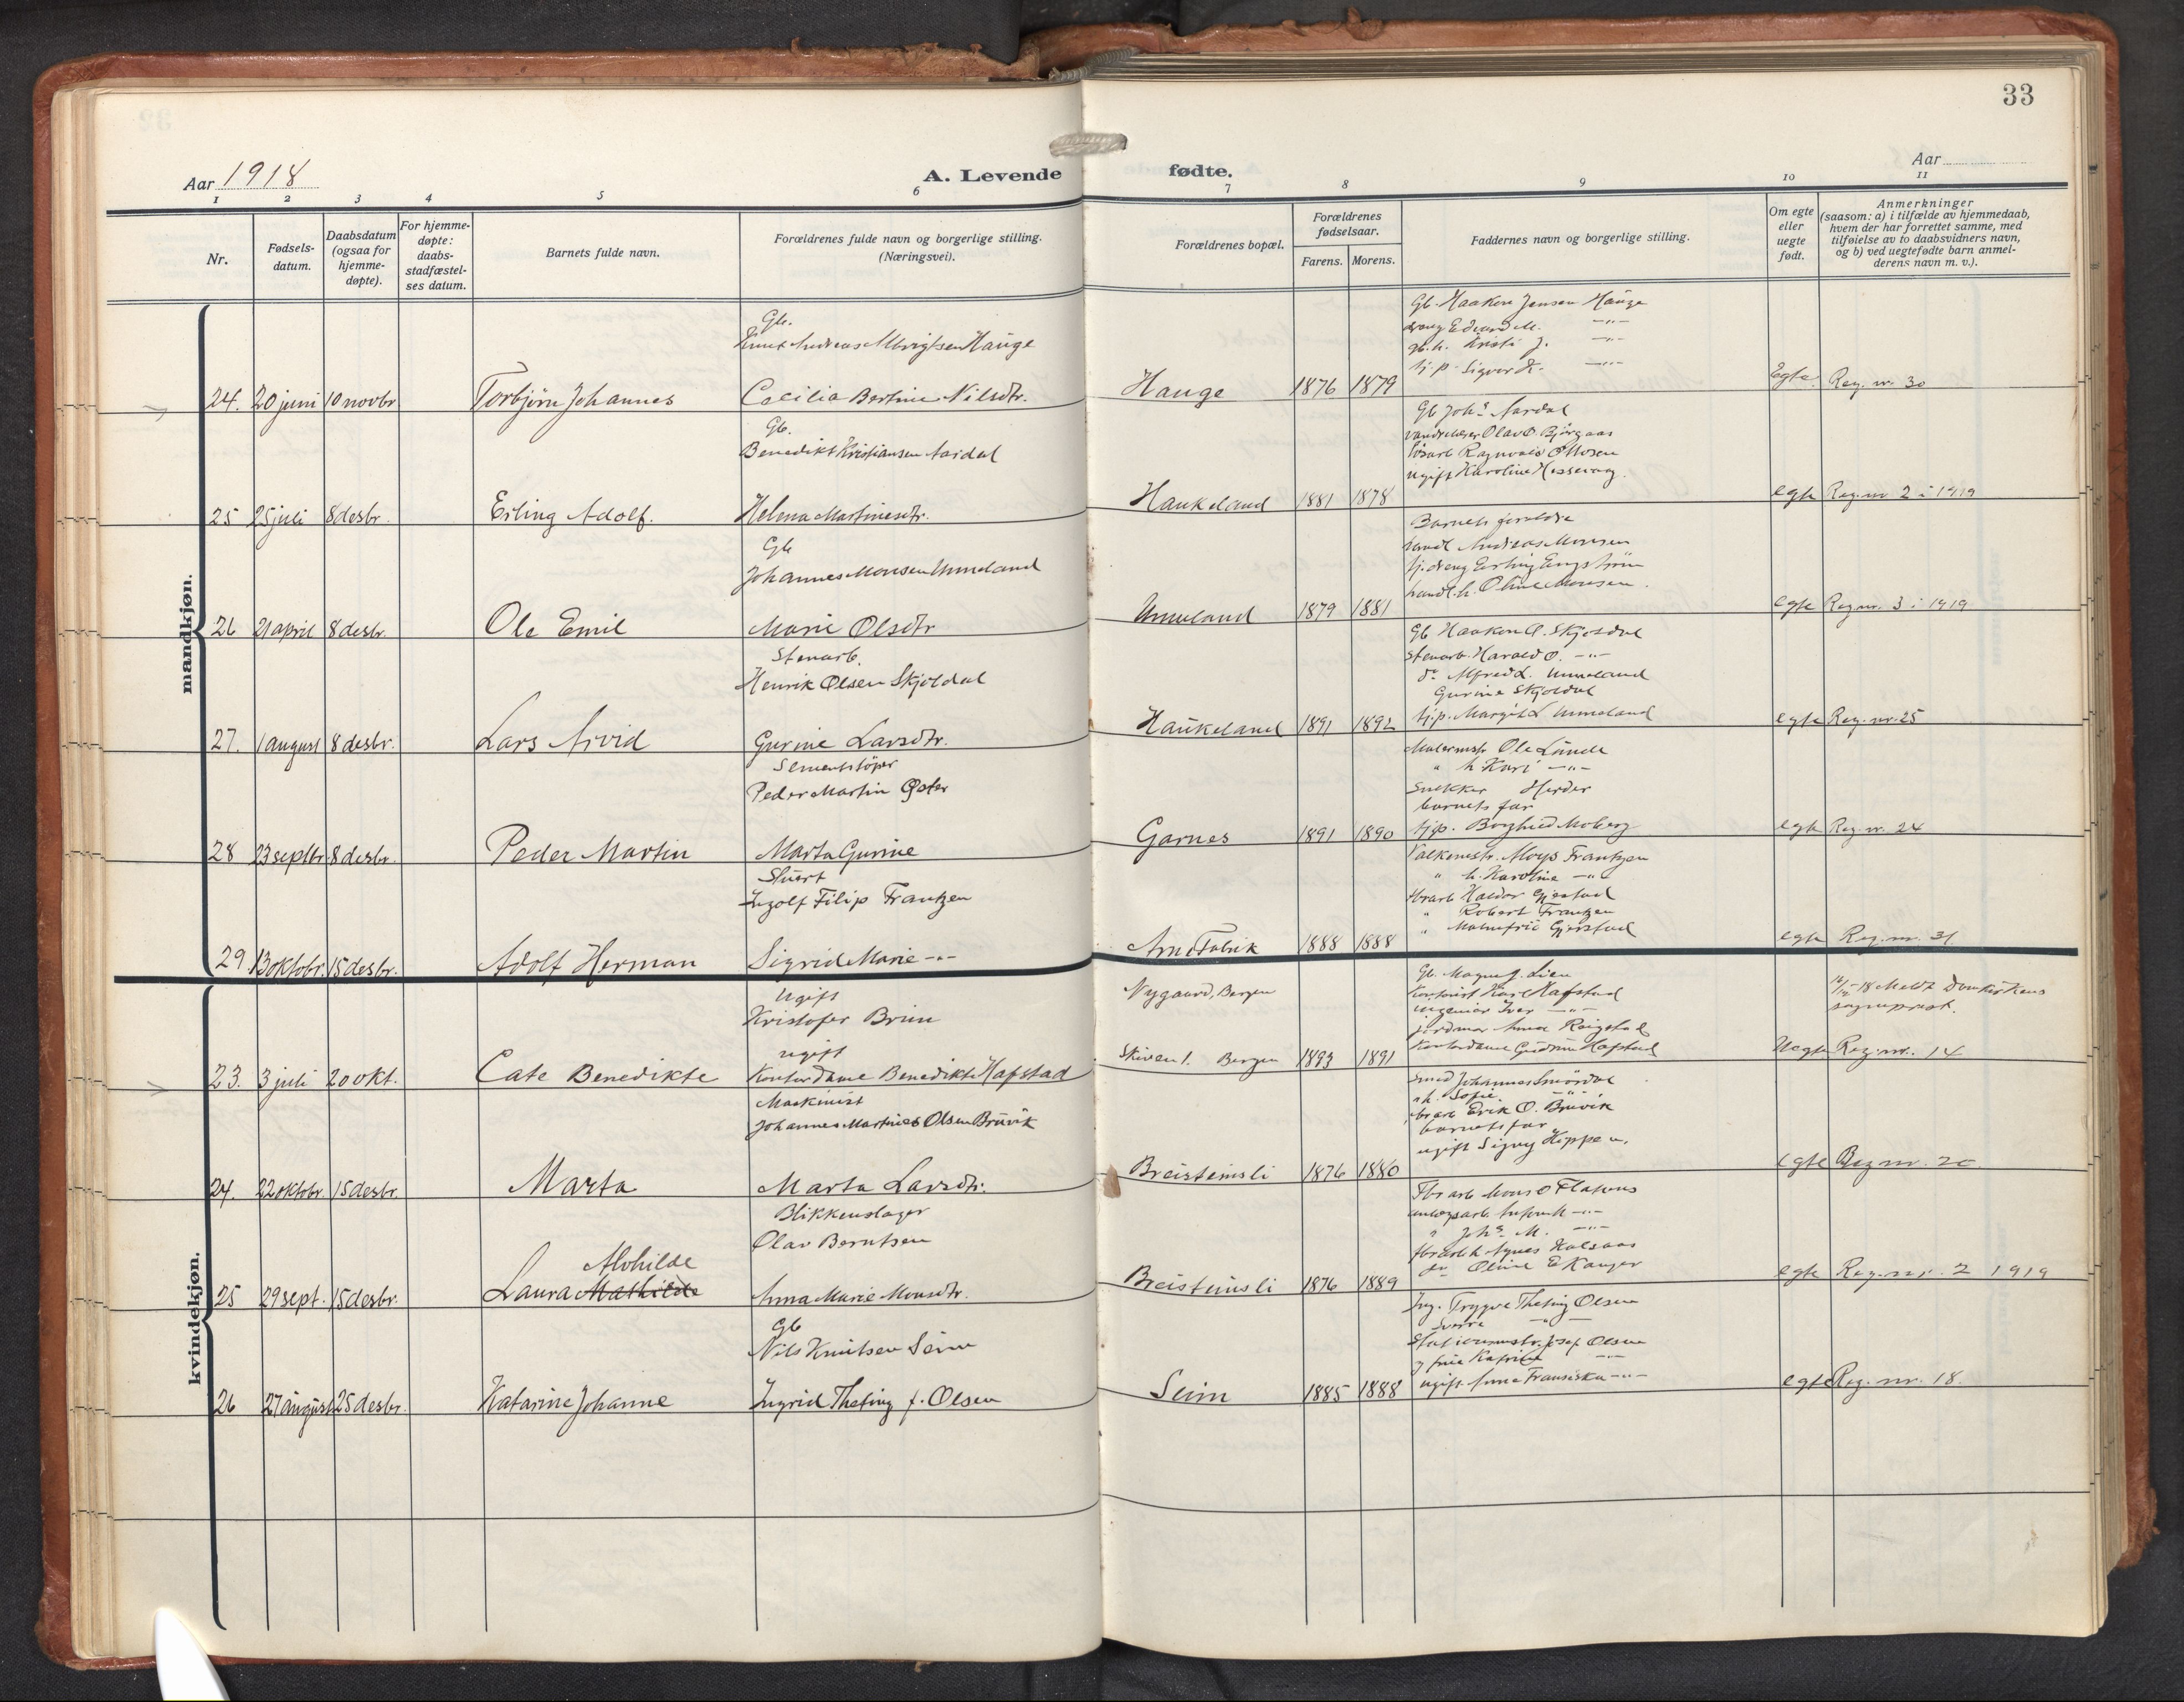 33
Aar 1918
A. Levende
fødte.
Aar
1 2 3 4 5 6 7 8 9 10 11
Nr.
Fødsels-
datum.
Daabsdatum
(ogsaa for
hjemme-
døpte).
For hjemme-
døpte:
daabs-
stadfæstel-
ses datum.
Barnets fulde navn.
Forældrenes fulde navn og borgerlige stilling.
(Næringsvei).
Forældrenes bopæl.
Forældrenes
fødselsaar.
Farens. Morens.
Faddernes navn og borgerlige stilling.
Om egte
eller
uegte
født.
Anmerkninger
(saasom: a) i tilfælde av hjemmedaab,
hvem der har forrettet samme, med
tilføielse av to daabsvidners navn,
og b) ved uegtefødte barn anmel-
derens navn m. v.).
mandkjøn.
24. 20 juni 10 novbr
Torbjørn Johannes
Gb.
Knut Andreas Hauge
Cecilia Bertine Nilsdtr.
Hauge 1876 1879
Gb. Haakon Jensen Hauge
dreng Edvard M. -"-
gb.h. Kristi J. -"-
tj.p. Sigvor K. -"-
Egte. Reg. nr. 30
25 25 juli 8 desbr.
Erling Adolf.
Gb.
Benedikt Kristiansen Aardal
Helena Martinesdtr.
Haukeland 1881 1878
Gb Johs Aardal
Olav O. Bjørgaas
løsarb Ragnvald Ottosen
ugift Karoline Hessevaag.
egte Reg. nr 2 i 1919
26 21 april 8 desbr.
Ole Emil
Gb
Johannes Monsen Unneland
Marie Olsdtr
Unneland 1879 1881
Barnets foreldre
handl Andreas Monsen
tj.dreng Erling Engstrøm
handl.h. Oline Monsen.
egte Reg nr. 3 i 1919
27. 1 august 8 desbr.
Lars Arvid
Stenarb.
Henrik Olsen Skjoldal
Gurine Larsdtr.
Haukeland 1891 1892
Gb Haakon O. Skjoldal
Stenarb. Harald O. -"-
do Alfred L. Unneland
Gurine Skjoldal
tj.p. Margit L Unneland
egte Reg. nr. 25
28 23 septbr. 8 desbr.
Peder Martin
Sementstøper
Peder Martin Øster
Marta Gurine
Garnes 1891 1890
Malermstr Ole Lunde
" h. Kari -"-
Snekker Herder
barnets far
tj.p. Borghild Moberg
egte Reg. nr. 24
29 13 oktobr. 15 desbr.
Adolf Herman
Ingolf Filip Frantzen
Sigrid Marie -"-
Arne Fabrik 1888 1888
Frantzen
" h. Karoline -"-
fbrarb Haldor Gjerstad
" Robert Frantzen
" Malmfrid Gjerstad
egte Reg. nr. 31
kvindekjøn.
23. 3 juli 20 okt.
Cate Benedikte
Ugift
Kristofer Brun
ugift
Kontordame Benedikte Hafstad
Nygaard, Bergen
Bergen 1893 1891
Gb. Magne J. Lien
Kontorist Karl Hafstad
ingeniør Iver -"-
jordmor Anna Raigstad
Kontordame Gudrun Hafstad
Uegte Reg. nr. 14
-18 Meldt Domkirkens
sogneprest.
24. 22 oktobr. 15 desbr.
Marta
Maskinist
Johannes Martines Olsen Bruvik
Marta Larsdtr.
Breisteinsli 1876 1880
Smed Johannes Smørdal
" h. Sofie. -"-
fbrarb Erik O. Bruvik
barnets far
ugift Signy Hippe u.
egte Reg nr. 20
25 29 sept. 15 desbr.
Alvhilde
Laura Mathilde
Blikkenslager
Olav Berntsen
Anna Marie Monsdtr.
Breisteinsli 1876 1889
Fbrarb Mons O Flatenes
-"-
" Johs. M. -"-
fbrarb.h. Agnes Halsaas
do Oline E Kanger
egte Reg. nr. 2 1919
26 27 august 25 desbr.
Katarine Johanne
Gb
Nils Knutsen Seim
Ingrid Theting f. Olsen
Seim 1885 1888
Ing. Trygve Theting Olsen
Sverre -"-
Stationsmstr. Josef Olsen
g frue Katrine -"-
ugift Anna Fransiska -"-
egte Reg. nr. 18.